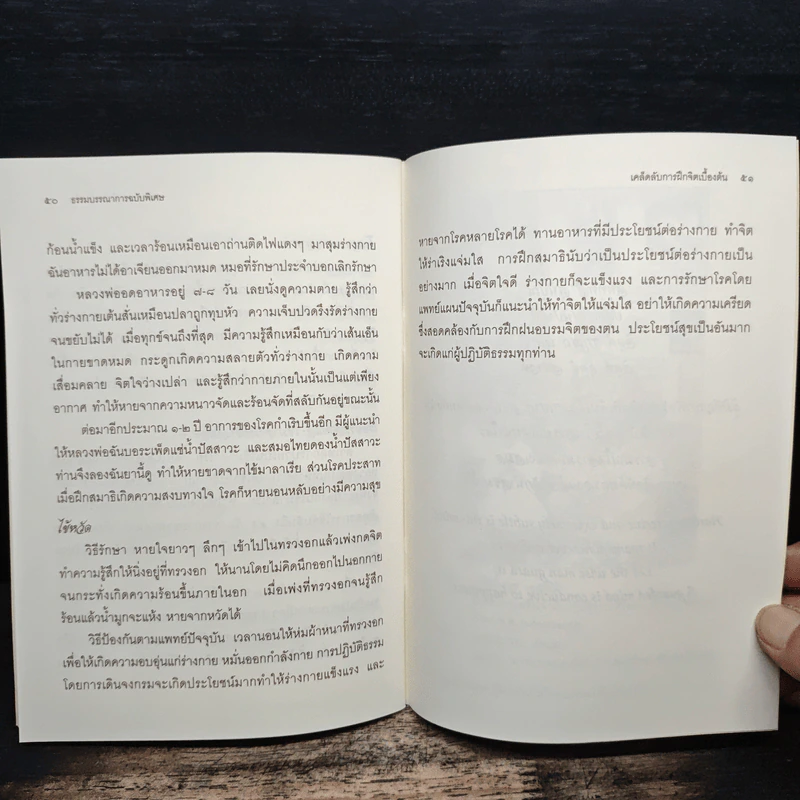 ๕๐ ธรรมบรรณาการฉบับพิเศษ
ก้อนน้ำแข็ง และเวลาร้อนเหมือนเอาถ่านติดไฟแดงๆ มาสุมร่างกาย
ฉันอาหารไม่ได้อาเจียนออกมาหมด หมอที่รักษาประจำบอกเลิกรักษา
หลวงพ่ออดอาหารอยู่ ๗-๘ วัน เลยนั่งดูความตาย รู้สึกว่า
ทั่วร่างกายเต้นสั่นเหมือนปลาถูกทุบหัว ความเจ็บปวดรึงรัดร่างกาย
จนขยับไม่ได้ เมื่อทุกข์จนถึงที่สุด มีความรู้สึกเหมือนกับว่าเส้นเอ็น
ในกายขาดหมด กระดูกเกิดความสลายตัวทั่วร่างกาย เกิดความ
เสื่อมคลาย จิตใจว่างเปล่า และรู้สึกว่ากายภายในนั้นเป็นแต่เพียง
อากาศ ทำให้หายจากความหนาวจัดและร้อนจัดที่สลับกันอยู่ขณะนั้น
ต่อมาอีกประมาณ ๑-๒ ปี อาการของโรคกำเริบขึ้นอีก มีผู้แนะนำ
ให้หลวงพ่อฉันบอระเพ็ดแช่น้ำปัสสาวะ และสมอไทยดองน้ำปัสสาวะ
ท่านจึงลองฉันยานี้ดู ทำให้หายขาดจากไข้มาลาเรีย ส่วนโรคประสาท
เมื่อฝึกสมาธิเกิดความสงบทางใจ โรคก็หายนอนหลับอย่างมีความสุข
ไข้หวัด
วิธีรักษา หายใจยาวๆ ลึกๆ เข้าไปในทรวงอกแล้วเพ่งกดจิต
ทำความรู้สึกให้นิ่งอยู่ที่ทรวงอก ให้นานโดยไม่คิดนึกออกไปนอกกาย
จนกระทั่งเกิดความร้อนขึ้นภายในอก เมื่อเพ่งที่ทรวงอกจนรู้สึก
ร้อนแล้วน้ำมูกจะแห้ง หายจากหวัดได้
วิธีป้องกันตามแพทย์ปัจจุบัน เวลานอนให้ห่มผ้าหนาที่ทรวงอก
เพื่อให้เกิดความอบอุ่นแก่ร่างกาย หมั่นออกกำลังกาย การปฏิบัติธรรม
โดยการเดินจงกรมจะเกิดประโยชน์มากทำให้ร่างกายแข็งแรง และ
เคล็ดลับการฝึกจิตเบื้องต้น ๕๑
หายจากโรคหลายโรคได้ ทานอาหารที่มีประโยชน์ต่อร่างกาย ทำจิต
ให้ร่าเริงแจ่มใส การฝึกสมาธินับว่าเป็นประโยชน์ต่อร่างกายเป็น
อย่างมาก เมื่อจิตใจดี ร่างกายก็จะแข็งแรง และการรักษาโรคโดย
แพทย์แผนปัจจุบันก็แนะนำให้ทำจิตให้แจ่มใส อย่าให้เกิดความเครียด
ซึ่งสอดคล้องกับการฝึกฝนอบรมจิตของตน ประโยชน์สุขเป็นอันมาก
จะเกิดแก่ผู้ปฏิบัติธรรมทุกท่าน